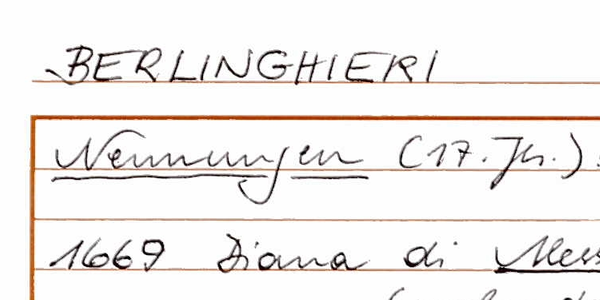 BERLINGHIERI
Nennungen (17. Jh.):
1669 Diana di